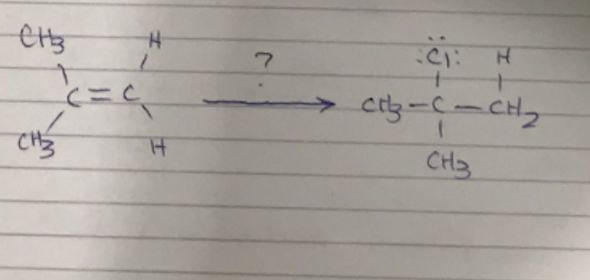 CH3 H ? :Cl: H
C=C CH3-C-CH2
CH3 H CH3